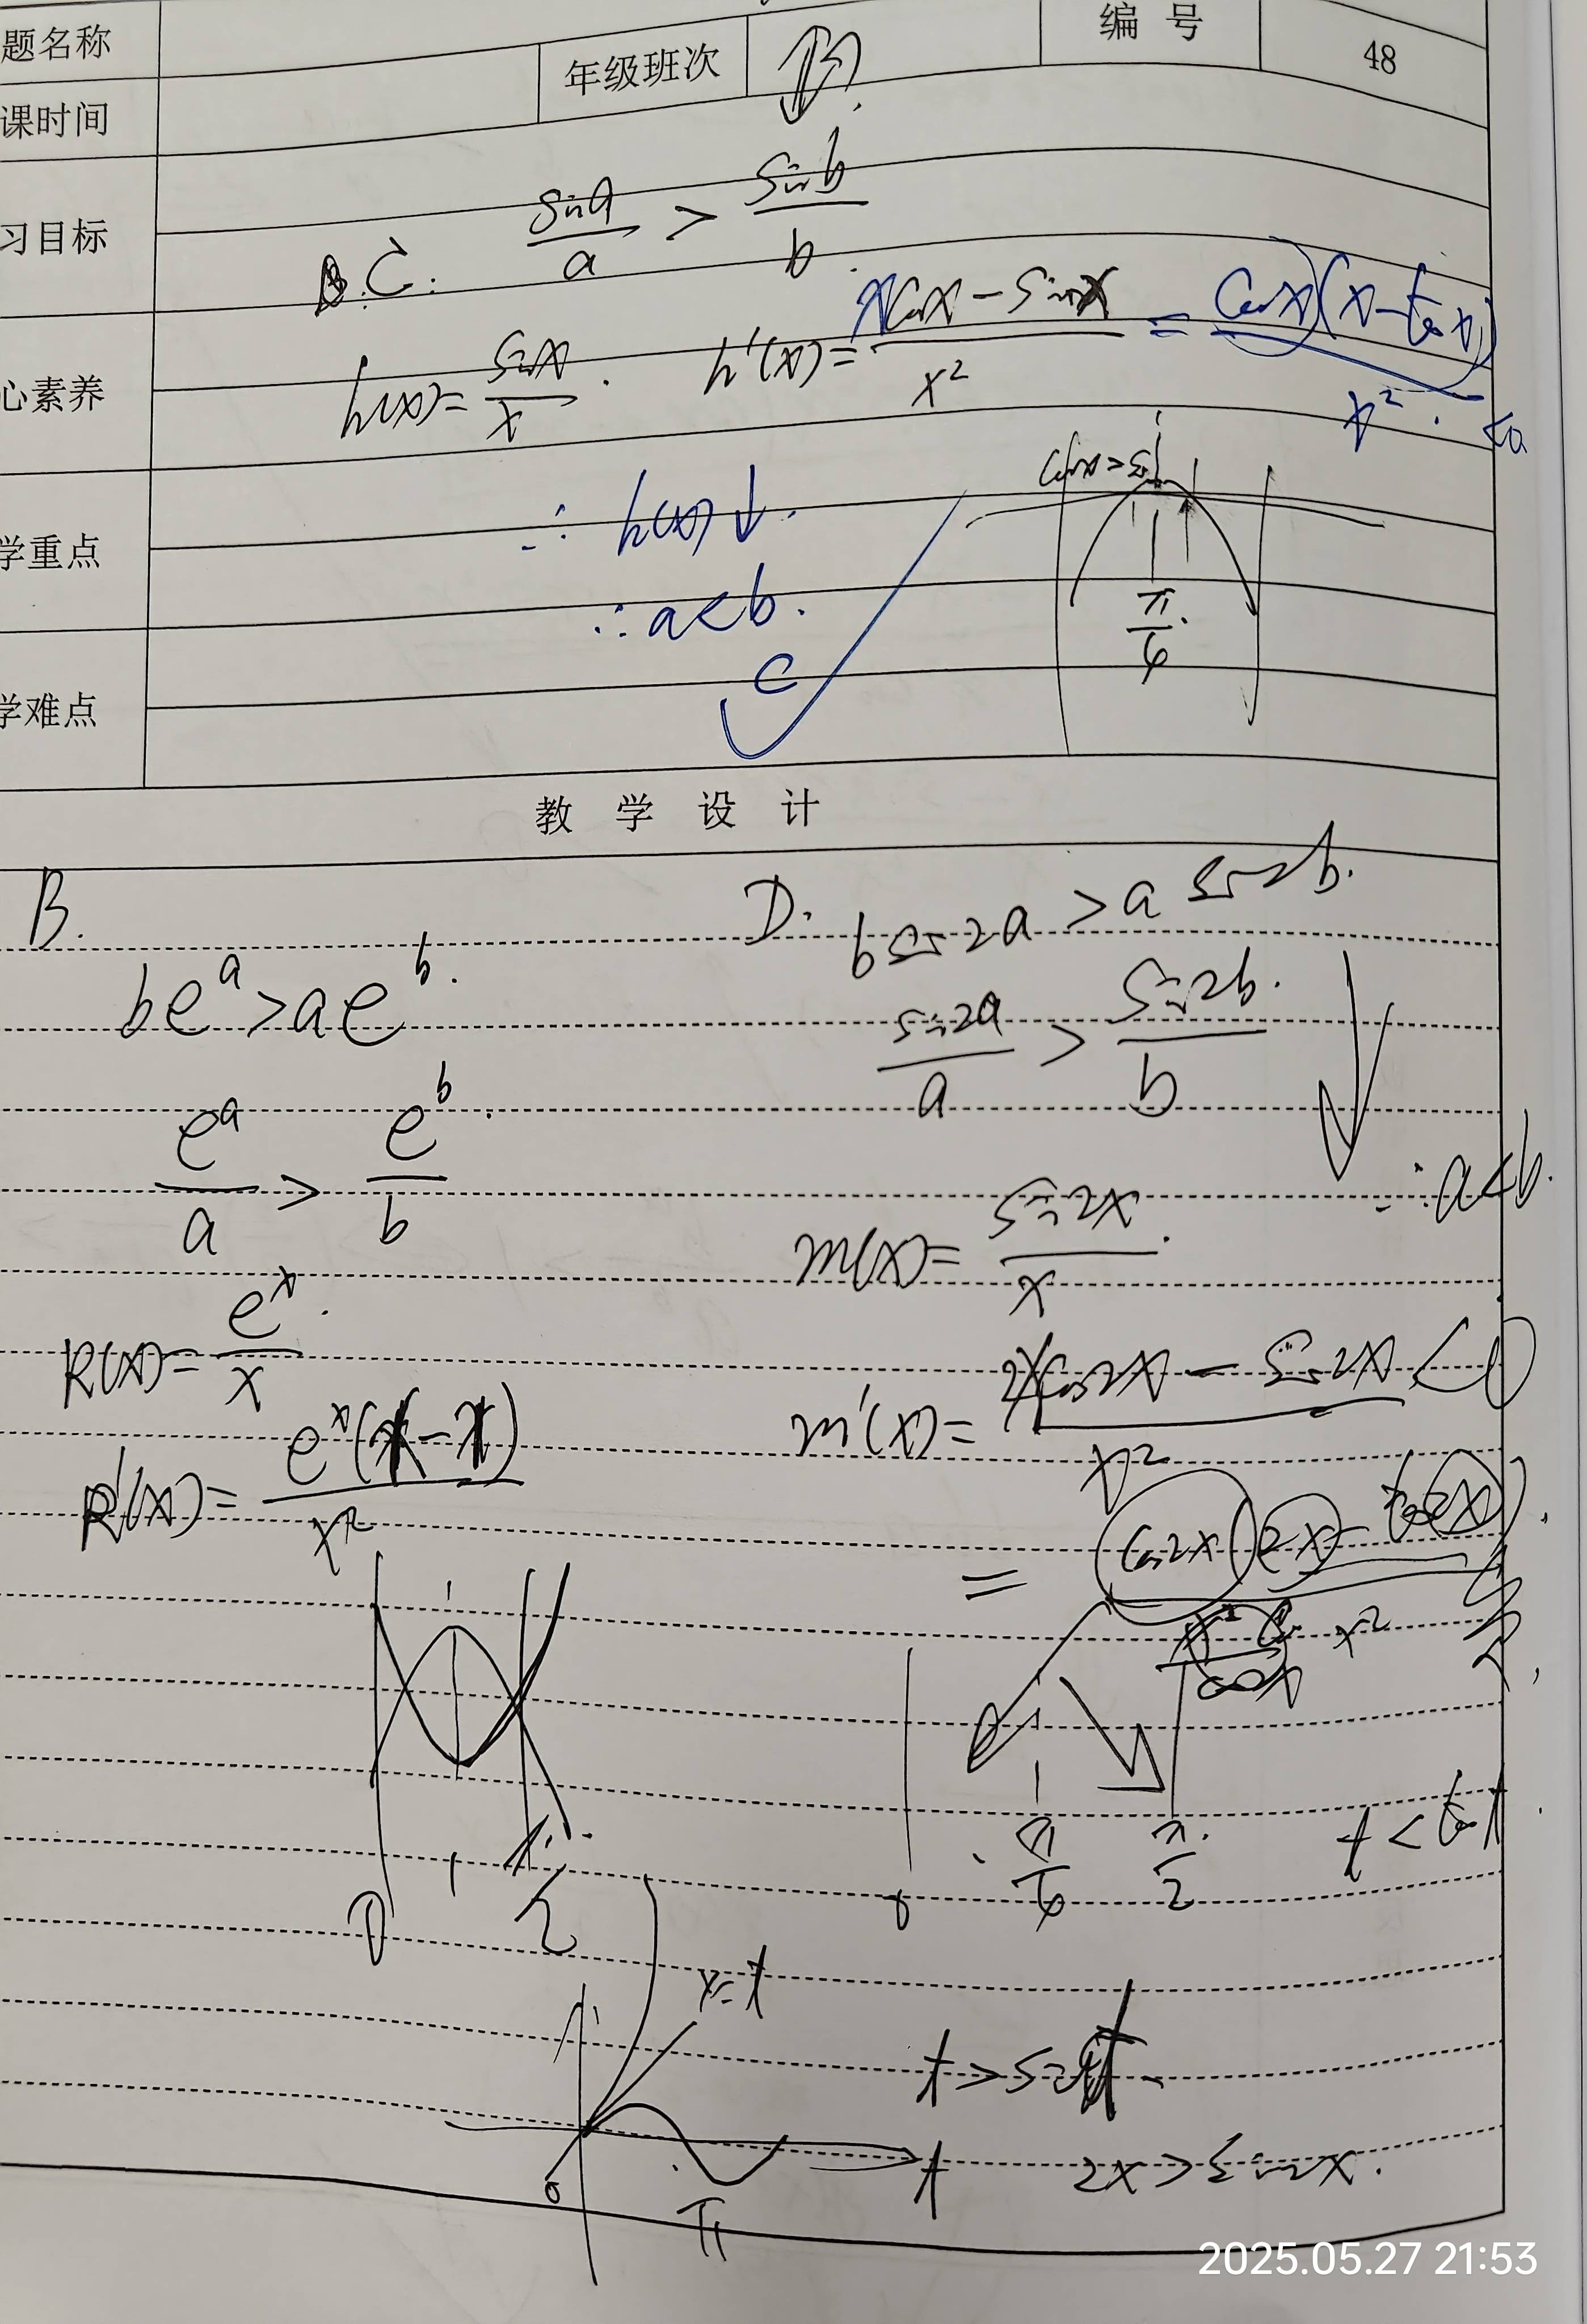 题名称
年级班次
编 号
48
课时间
习目标
C. sina/a > sinb/b.
心素养
h(x)= sinx/x . h'(x)= (xcosx-sinx)/x² = cosx(x-tanx)/x² . <0
学重点
∴ h(x)↓.
∴a<b.
C
π/6.
学难点
教 学 设 计
B.
be^a>ae^b.
e^a/a > e^b/b .
R(x)= e^x/x .
R'(x)= e^x(x-1)/x²
0 1 π/2
y=t
0 π t
D. bsin2a > asin2b.
sin2a/a > sin2b/b
∴a<b.
m(x)= sin2x/x .
m'(x)= (2xcos2x-sin2x)/x² <0
= cos2x(2x-tan2x)/x²
0 π/6 π/2
t<tant.
t>sint
2x>sin2x.
2025.05.27 21:53